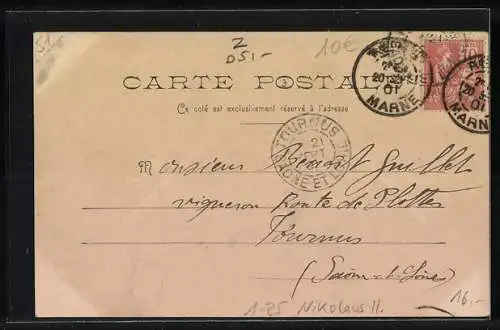 51
Z
051-
10€
CARTE POSTALE
Ce coté est exclusivement réservé à l'adresse
20
01
MARNE
20
01
MARNE
TOURNUS
21
SAONE ET L
Monsieur Benoit Guillet
vigneron Route de Plottes
Tournus
(Saône-et-Loire)
1-25 Nikolaus II.
16,-